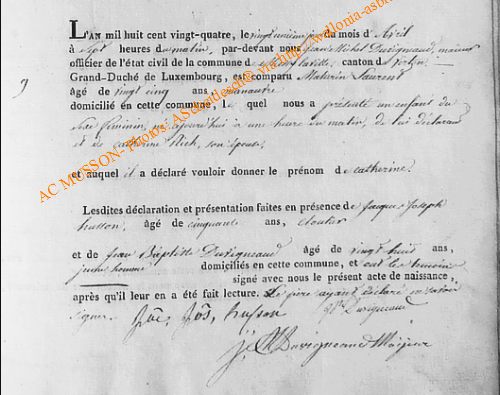 L'AN mil huit cent vingt-quatre, le vingt unième jour du mois d'Avril
à sept heures du matin, par-devant nous Jean Michel Duvigneaud, maieur
officier de l'état civil de la commune de canton de
Grand-Duché de Luxembourg, est comparu Mathurin Laurent
âgé de vingt cinq ans, manœuvre
domicilié en cette commune, le quel nous a présenté un enfant du
sexe féminin, né aujourd'hui à une heure du matin, de lui déclarant
et de catherine son épouse,
et auquel il a déclaré vouloir donner le prénom de catherine.
Lesdites déclaration et présentation faites en présence de Jacque Joseph
husson, âgé de cinquante ans, cloutier
et de Jean Baptiste Duvigneaud âgé de vingt huit ans,
jeune homme domiciliés en cette commune, et ont les temoins
signé avec nous le présent acte de naissance,
après qu'il leur en a été fait lecture. Le père ayant déclaré ne savoir
signer. Jac, Jos, husson Duvigneaud
Duvigneaud Maieur
9
AC MUSSON- Photos: via http://wallonia-asbl